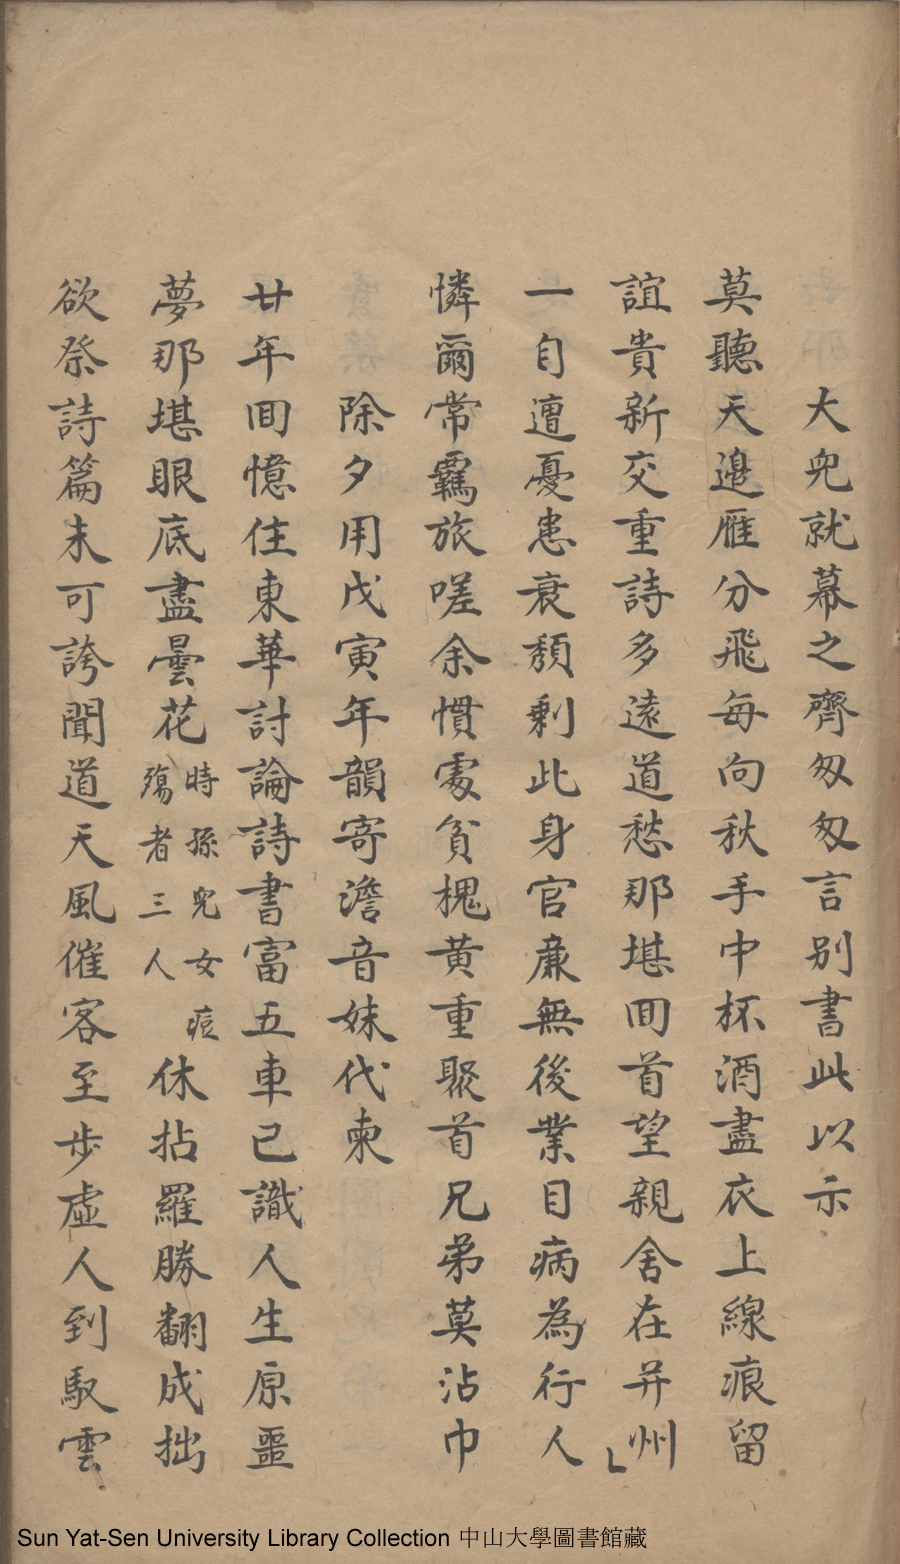 大兒就幕之齊匆匆言别書此以示
莫聽天邉雁分飛每向秋手中杯酒盡衣上線痕留
誼貴新交重詩多遠道愁那堪囬首望親舍在并州
一自遭憂患衰頽剩此身官廉無後業目病為行人
憐爾常羈旅嗟余慣處貧槐黄重聚首兄弟莫沾巾
除夕用戊寅年韻寄澹音妹代柬
廿年囬憶住東華討論詩書富五車已識人生原噩
夢那堪眼底盡曇花時孫兒女痘殤者三人休拈羅勝翻成拙
欲祭詩篇未可誇聞道天風催客至步虛人到馭雲
Sun Yat-Sen University Library Collection 中山大學圖書館藏